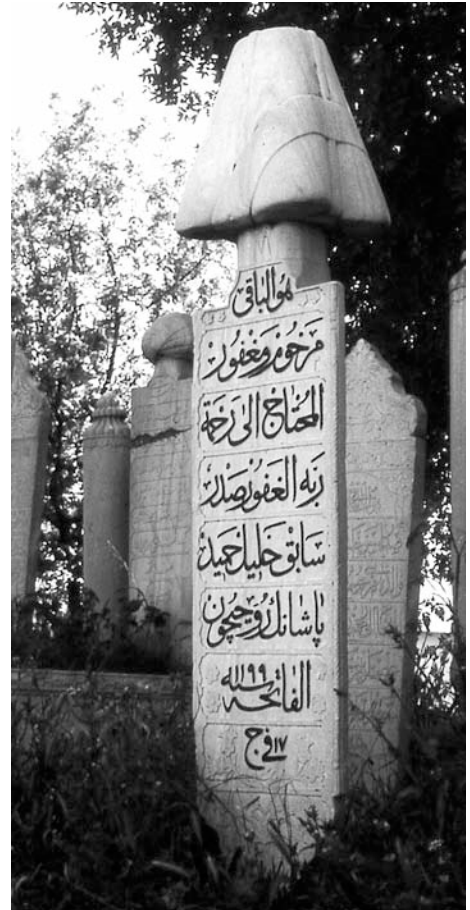 هو الباقی
مرحوم و مغفور
المحتاج الی رحمة
ربه الغفور صدر
سابق خلیل حمید
پاشانك روحیچون
الفاتحه سنه ١١٩٩
فی ١٧ ج